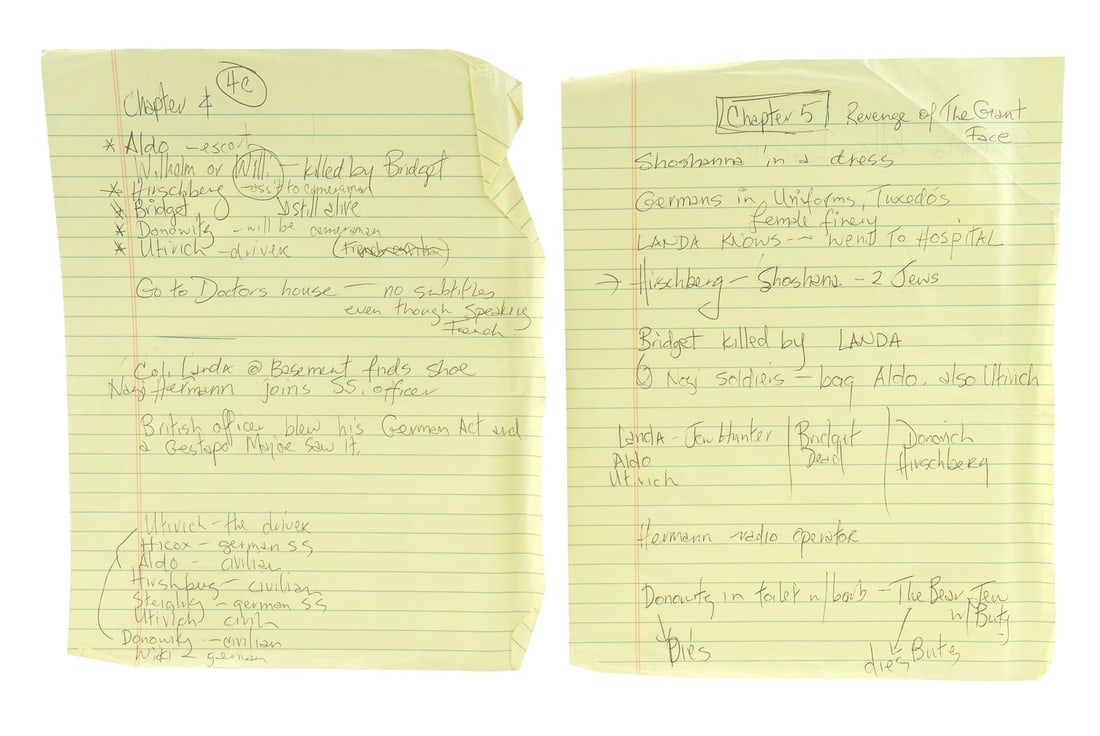 4c
Chapter 4
* Aldo - escort
Wilhelm or Willi - killed by Bridget
* Hirschberg - ass't to cameraman
* Bridget still alive
* Donowitz - will be cameraman
* Utivich - driver
Go to Doctors house - no subtitles
even though speaking
French.
Col. Landa @ Basement finds shoe
Nazi Hermann joins SS. officer
British officer blew his German Act and
a Gestapo Major saw it.
Utivich - the driver
Hicox - german SS
Aldo - civilian
Hirshburg - civilian
german SS
Utivich civil
Donowitz - civilian
Wicki - german
Chapter 5 Revenge of The Giant
Face
Shoshanna in a dress
Germans in Uniforms, Tuxedo's
female finery
LANDA KNOWS -- went To HOSPITAL
→ Hirschberg - Shoshana - 2 Jews
Bridget killed by LANDA
Nazi soldiers - bag Aldo. also Utivich
Landa - Jew Hunter | Bridget | Donowich
Aldo Dead Hirschberg
Utivich
Hermann radio operator
Donowitz in toilet w/bomb - The Bear Jew
w/
Dies dies